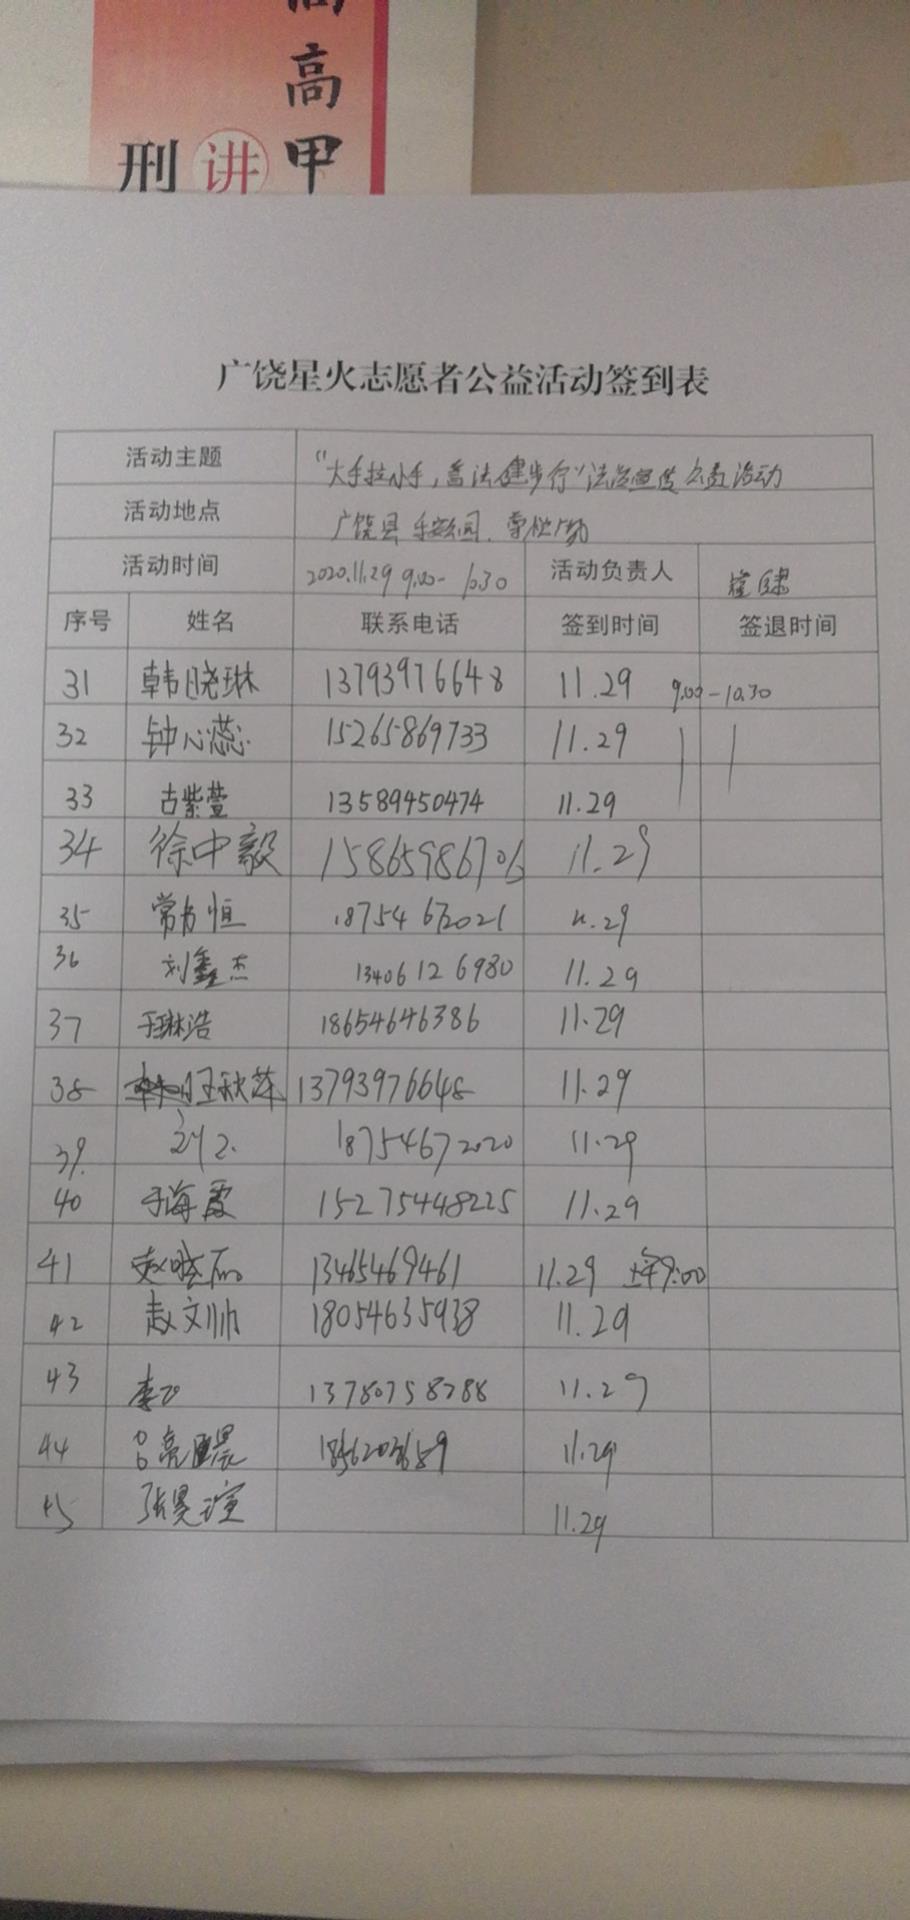 高
刑 讲 甲
广饶星火志愿者公益活动签到表
活动主题 "大手拉小手，普法健步行"法治宣传公益活动
活动地点 广饶县 乐安公园、
活动时间 2020.11.29 9:00-10:30 活动负责人
序号 姓名 联系电话 签到时间 签退时间
31 韩晓琳 13793976648 11.29 9:00-10:30
32 钟心蕊 15265869733 11.29
33 古紫萱 13589450474 11.29
34 徐中毅 15865986706 11.29
35 常方恒 18754672021 11.29
36 刘鑫杰 13406126980 11.29
37 于琳浩 18654646386 11.29
38 王秋萍 13793976648 11.29
39. 18754672020 11.29
40 于海霞 15275448225 11.29
41 赵晓丽 13465469461 11.29 上午9:00
42 赵文帅 18054635938 11.29
43 李飞 13780758788 11.29
44 11.29
45 张昊瑄 11.29